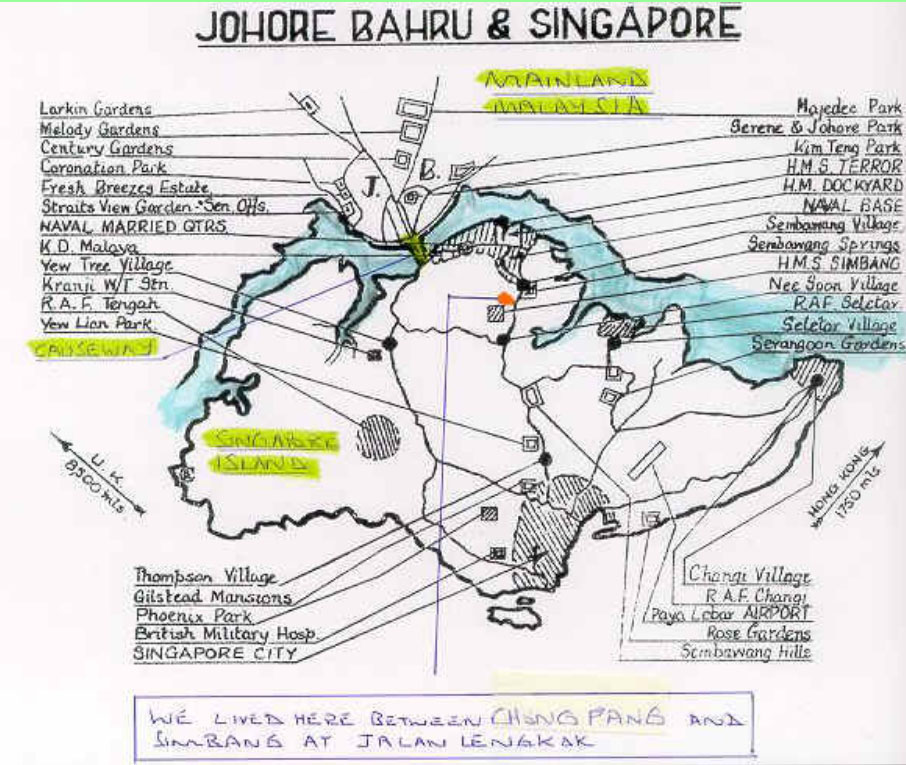 JOHORE BAHRU & SINGAPORE
MAINLAND
MALAYSIA
Larkin Gardens
Melody Gardens
Century Gardens
Coronation Park
Fresh Breezes Estate
Straits View Garden - Sen. Offs.
NAVAL MARRIED QTRS
K.D. Malaya
Yew Tree Village
Kranji W/T Stn.
R.A.F. Tengah
Yew Lian Park
CAUSEWAY
J.
B.
Majedee Park
Serene & Johore Park
Kim Teng Park
H.M.S. TERROR
H.M. DOCKYARD
NAVAL BASE
Sembawang Village
Sembawang Springs
H.M.S. SIMBANG
Nee Soon Village
R.A.F. Seletar
Seletar Village
Serangoon Gardens
SINGAPORE
ISLAND
U.K
8,500 mls.
HONG KONG
1750 mls
Thompson Village
Gilstead Mansions
Phoenix Park
British Military Hosp.
SINGAPORE CITY
Changi Village
R.A.F. Changi
Paya Lebar AIRPORT
Rose Gardens
Sembawang Hills
WE LIVED HERE BETWEEN CHONG PANG AND
SIMBANG AT JALAN LENGKAK